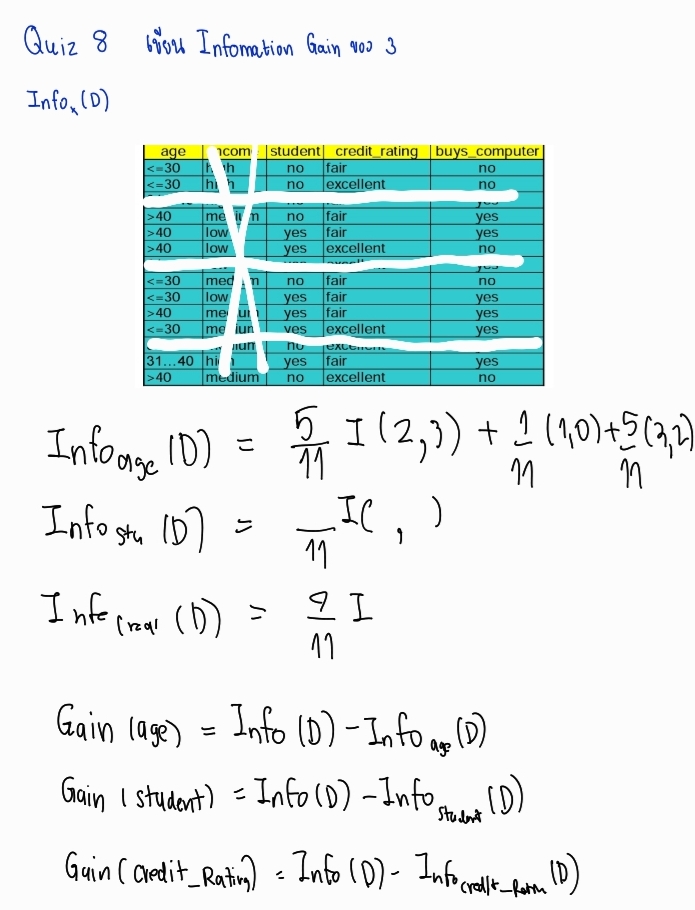 Quiz 8 เขียน Infomation Gain ของ 3
Infoₓ(D)
age income student credit_rating buys_computer
<=30 high no fair no
<=30 high no excellent no
>40 medium no fair yes
>40 low yes fair yes
>40 low yes excellent no
<=30 medium no fair no
<=30 low yes fair yes
>40 medium yes fair yes
<=30 medium yes excellent yes
31…40 high yes fair yes
>40 medium no excellent no
Info age (D) = 5/11 I(2,3) + 1/11 (1,0) + 5/11 (3,2)
Info stu (D) = /11 I( , )
(D) = /11 I
Gain (age) = Info (D) - Info age (D)
Gain (student) = Info (D) - Info student (D)
Gain (Credit_Rating) = Info (D) - Info (D)